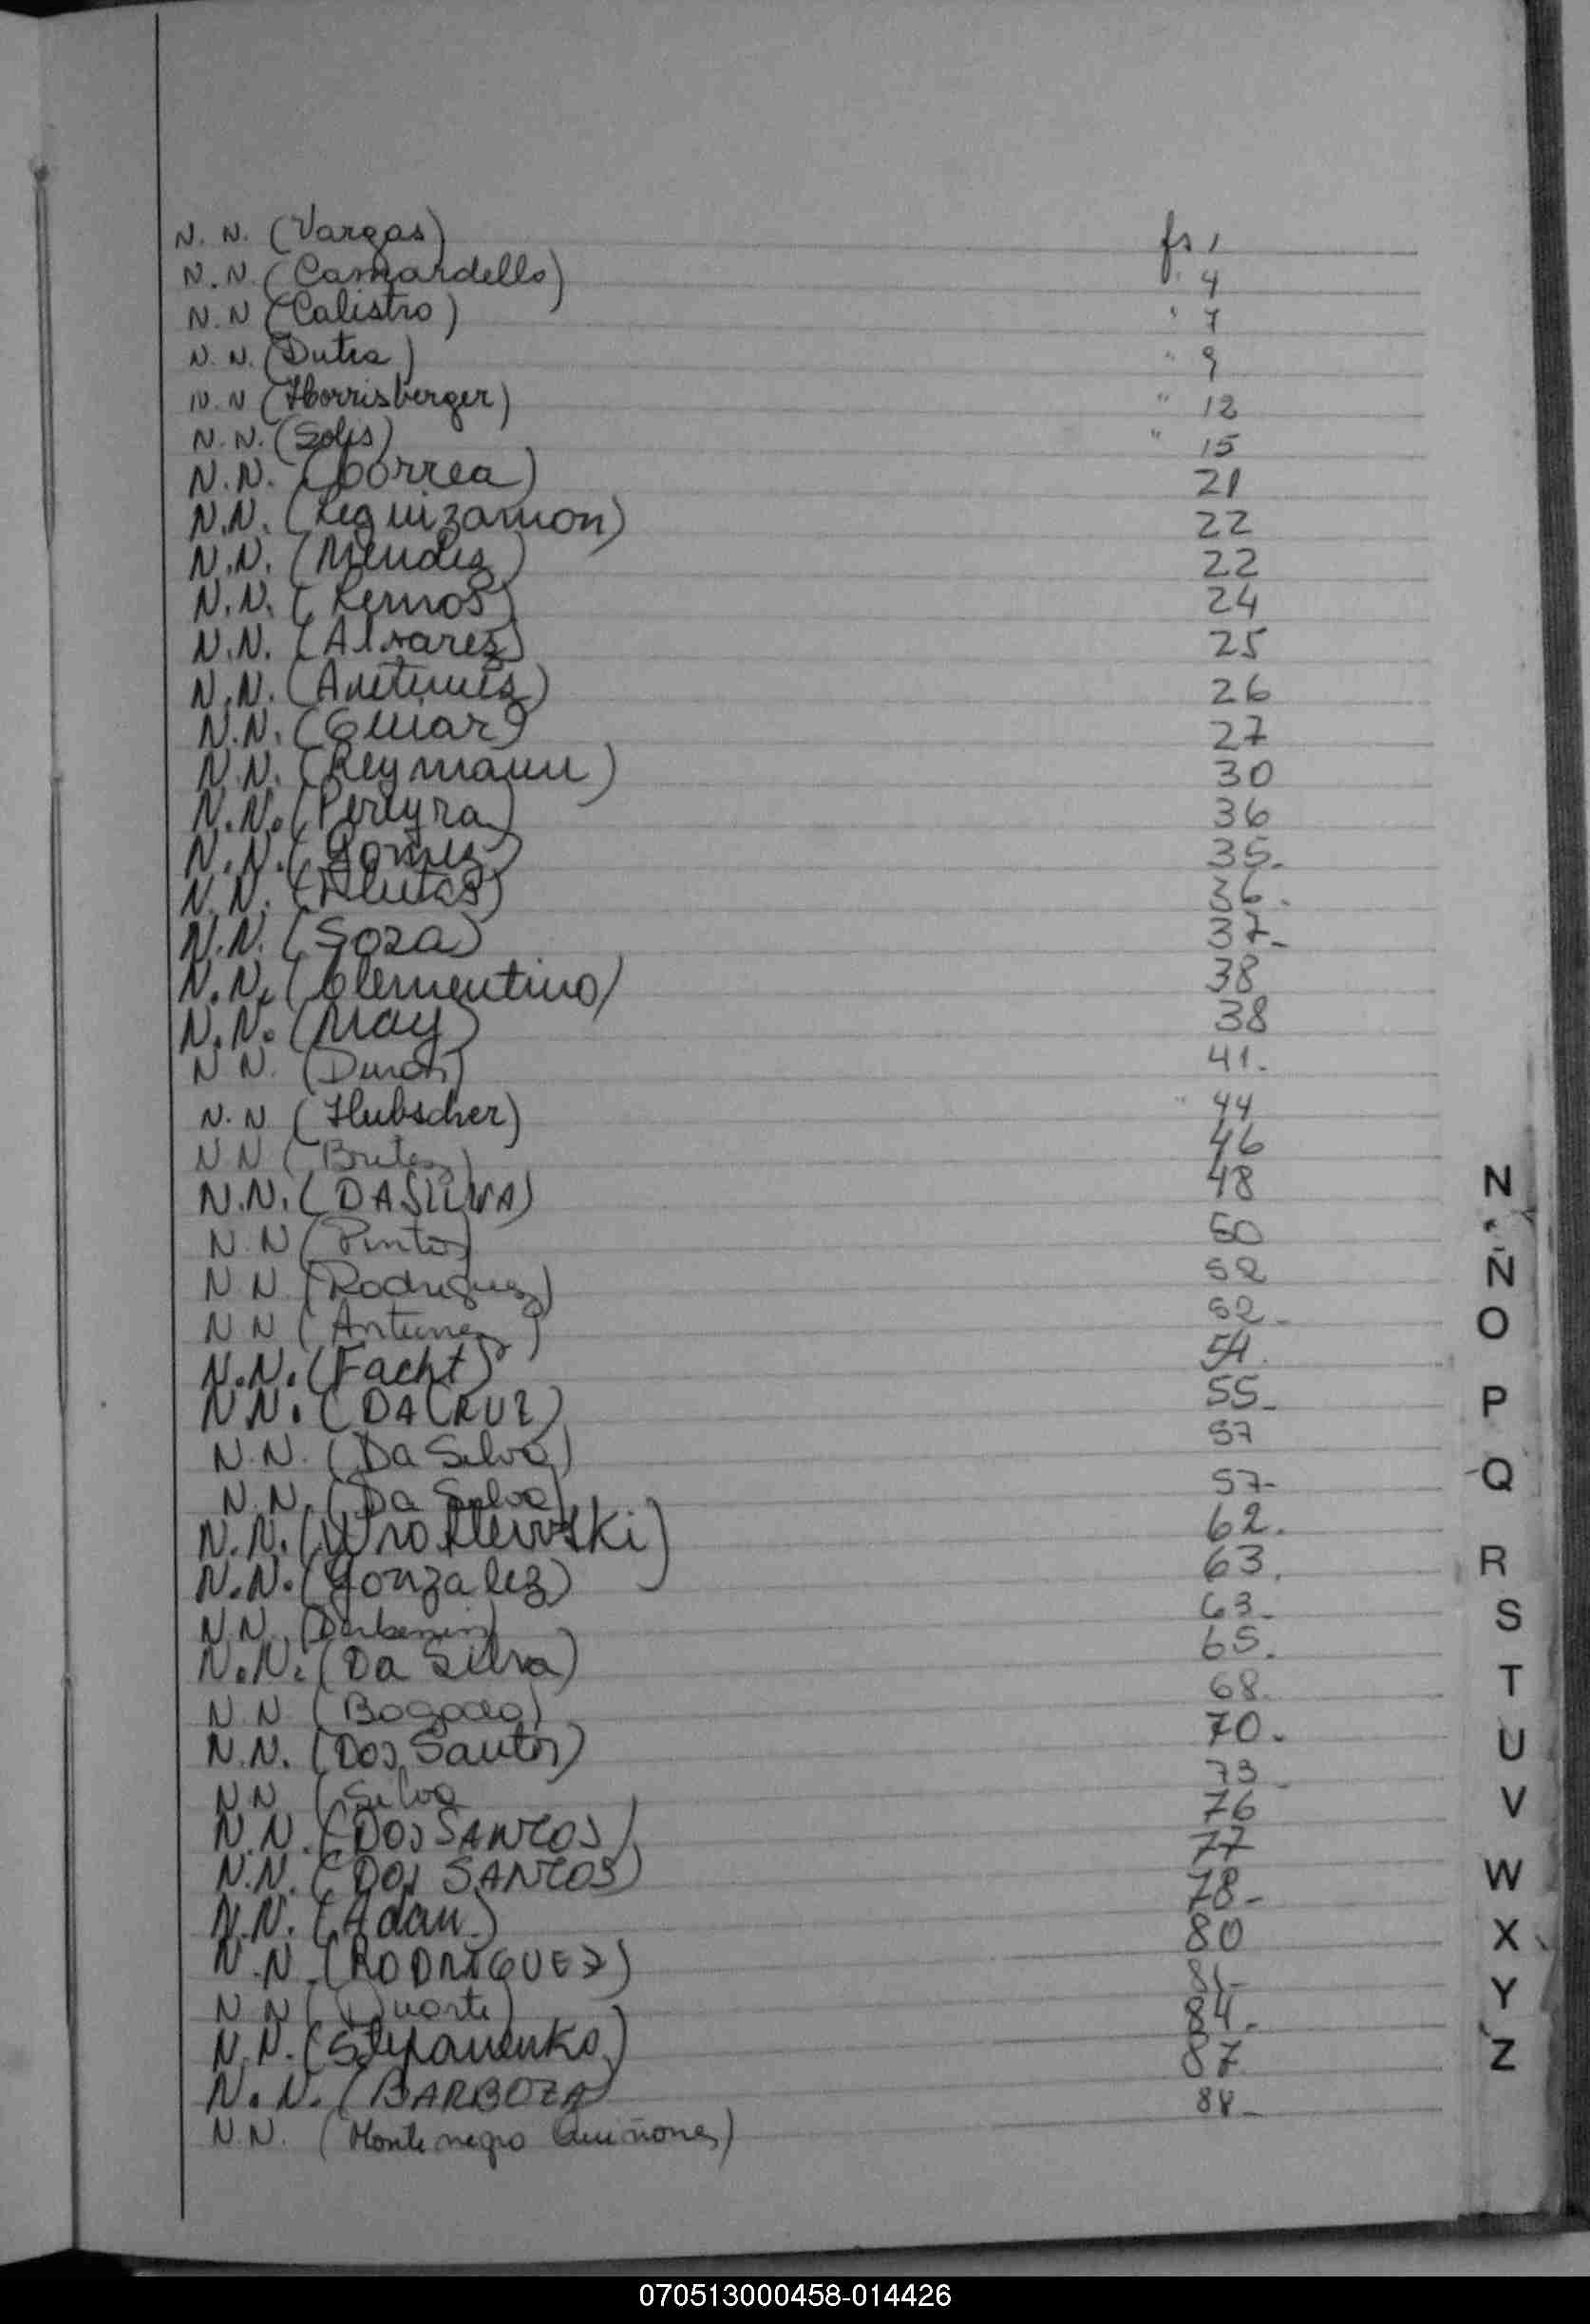 N. N. (Vargas) fs 1
N. N. (Camardello) " 4
N. N (Calistro) " 7
N. N. (Dutra) " 9
N. N (Horrisberger) " 12
N. N. (Solis) " 15
N. N. (Correa) 21
N. N. (Leguizamon) 22
N. N. (Mendez) 22
N. N. (Lemos) 24
N. N. (Alvarez) 25
N. N. (Antunes) 26
N. N. ( 27
N. N. (Reymann) 30
N. N. (Pereyra) 36
N. N. (Gomez) 35.
N. N. ( 36.
N. N. (Soza) 37-
N. N. (Clementino) 38
N. N. (May) 38
N N. (Duran) 41.
N. N (Hubscher) " 44
N N (Britez) 46
N. N. (DASILVA) 48
N. N (Pinto) 50
N N (Rodriguez) 52
N N (Antunez) 52-
N. N. (Facht) 54.
N. N. (DA CRUZ) 55-
N. N. (Da Silva) 57
N. N. (Da Silva) 57-
N. N. ( 62.
N. N. (Gonzalez) 63.
N N. ( 63-
N. N. (Da Silva) 65.
N N (Bogado) 68.
N. N. (Dos Santos) 70.
N N (Silva 73-
N. N. (DOS SANTOS) 76
N. N. (DOS SANTOS) 77
N. N. (Adam) 78-
N. N. (RODRIGUEZ) 80
N N (Duarte) 81-
N. N. (Stepanenko) 84.
N. N. (BARBOZA) 87.
N. N. (Montenegro Quiñones) 88-
N
Ñ
O
P
Q
R
S
T
U
V
W
X
Y
Z
070513000458-014426